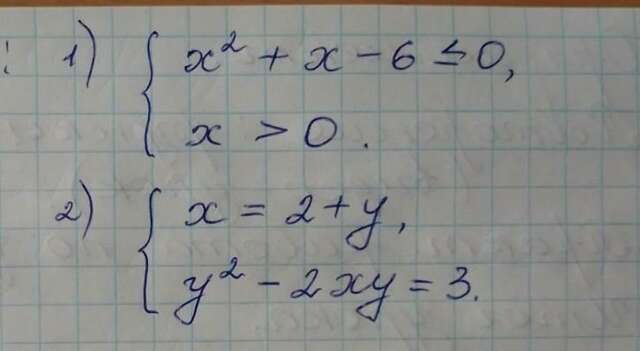 1) { x² + x - 6 ≤ 0,
x > 0.
2) { x = 2 + y,
y² - 2xy = 3.